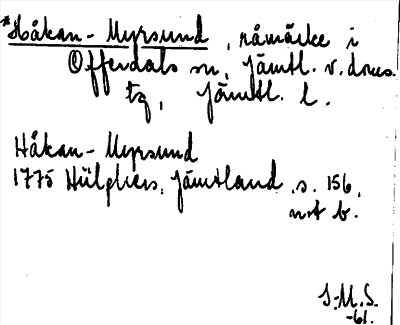 *Håkan-Myrsund, råmärke i
Offerdals sn, Jämtl. v. doms.
tg, Jämtl. l.
Håkan-Myrsund
1775 Hülphers, Jämtland s. 156,
not b.
S.M.S.
-61.